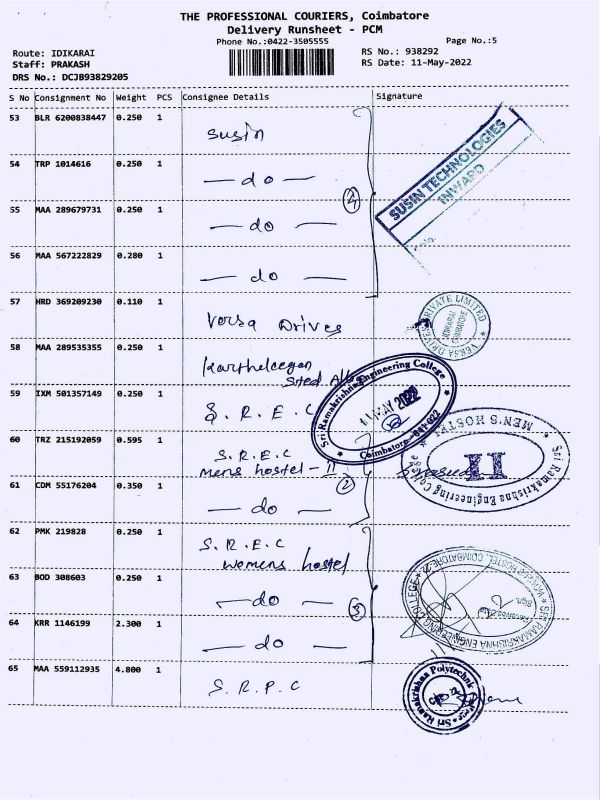 THE PROFESSIONAL COURIERS, Coimbatore
Delivery Runsheet - PCM
Phone No.:0422-3505555
Page No.:5
Route: IDIKARAI
Staff: PRAKASH
DRS No.: DCJB93829205
RS No.: 938292
RS Date: 11-May-2022
S No Consignment No Weight PCS Consignee Details Signature
53 BLR 6200838447 0.250 1
Susin
SUSIN TECHNOLOGIES
INWARD
54 TRP 1014616 0.250 1
— do —
55 MAA 289679731 0.250 1
— do —
4
56 MAA 567222829 0.280 1
— do —
57 HRD 369209230 0.110 1
Versa Drives
VERSA DRIVES PRIVATE LIMITED
IDIKARAI
COIMBATORE
58 MAA 289535355 0.250 1
Steel
59 IXM 501357149 0.250 1
S. R. E. C
Sri Ramakrishna Engineering College
11 MAY 2022
Coimbatore - 641 022
60 TRZ 215192059 0.595 1
S. R. E. C
mens hostel - II
2
Sri Ramakrishna Engineering College
MEN'S HOSTEL
II
61 CDM 55176204 0.350 1
— do —
62 PMK 219828 0.250 1
S. R. E. C
womens hostel
SRI RAMAKRISHNA ENGINEERING COLLEGE
HOSTEL, COIMBATORE-22
Sign.
63 BOD 308603 0.250 1
— do —
3
64 KRR 1146199 2.300 1
— do —
65 MAA 559112935 4.800 1
S. R. P. C
Sri Ramakrishna Polytechnic College